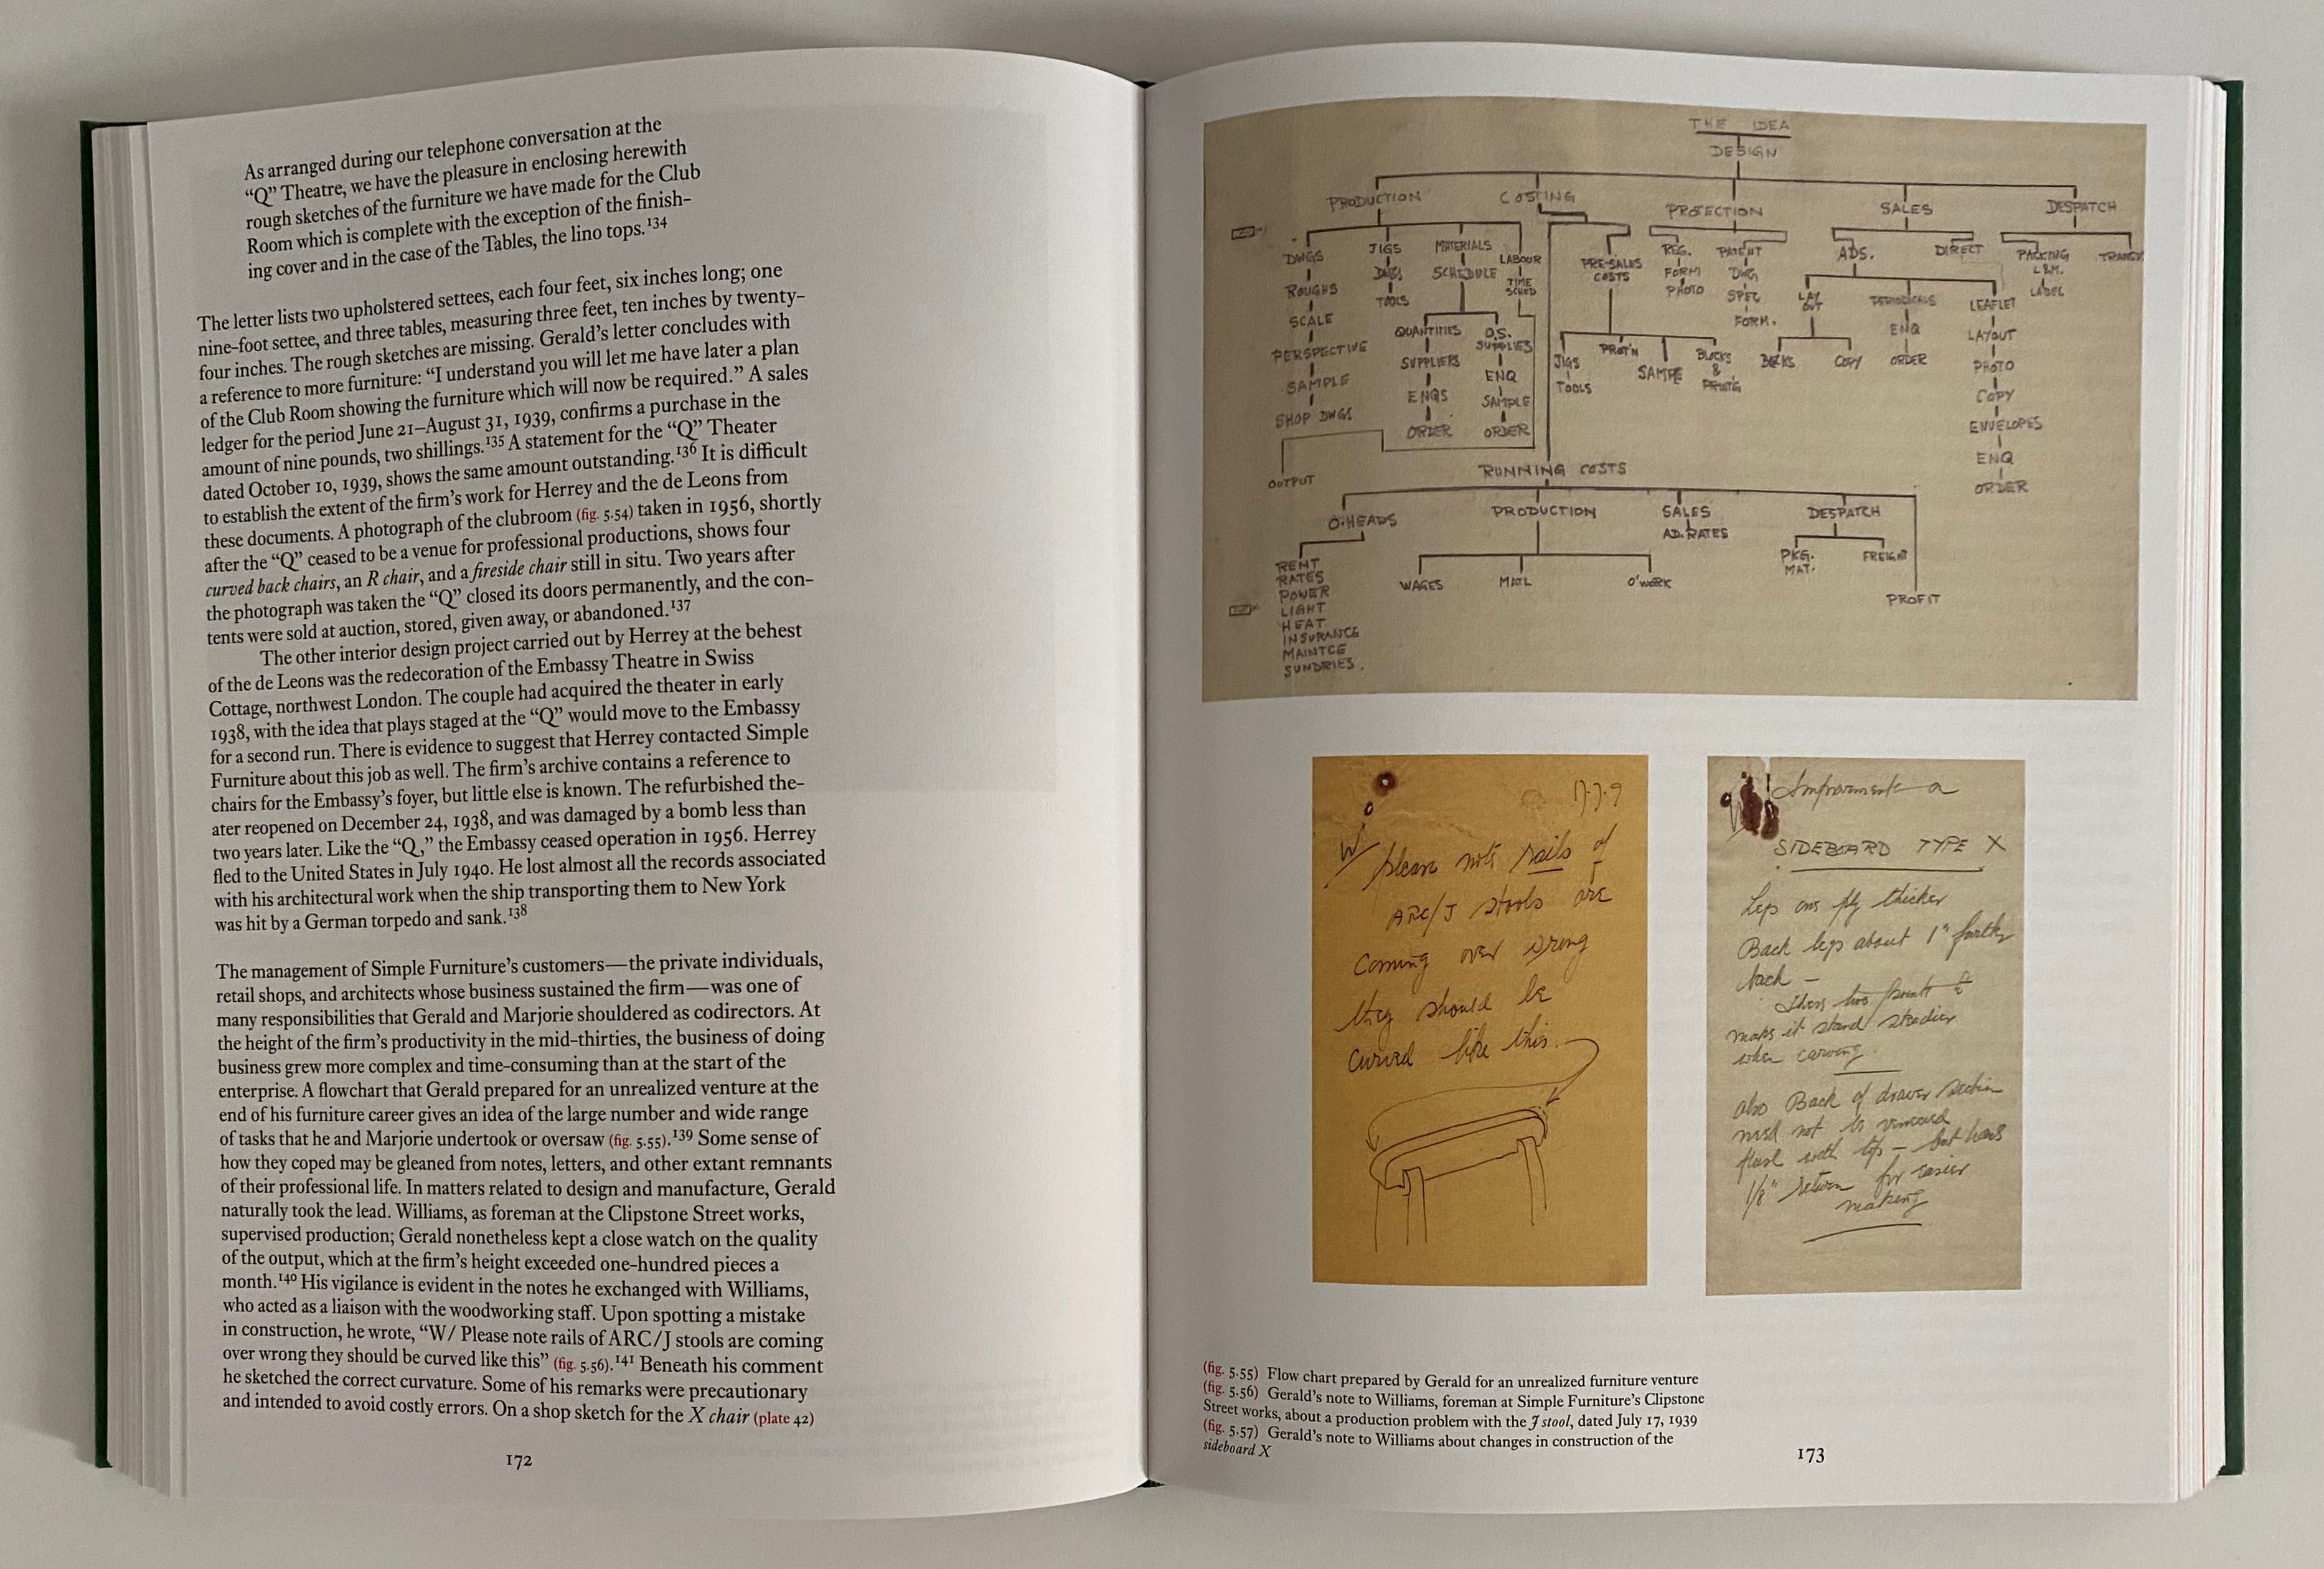 As arranged during our telephone conversation at the
“Q” Theatre, we have the pleasure in enclosing herewith
rough sketches of the furniture we have made for the Club
Room which is complete with the exception of the finish-
ing cover and in the case of the Tables, the lino tops.134
The letter lists two upholstered settees, each four feet, six inches long; one
nine-foot settee, and three tables, measuring three feet, ten inches by twenty-
four inches. The rough sketches are missing. Gerald’s letter concludes with
a reference to more furniture: “I understand you will let me have later a plan
of the Club Room showing the furniture which will now be required.” A sales
ledger for the period June 21–August 31, 1939, confirms a purchase in the
amount of nine pounds, two shillings.135 A statement for the “Q” Theater
dated October 10, 1939, shows the same amount outstanding.136 It is difficult
to establish the extent of the firm’s work for Herrey and the de Leons from
these documents. A photograph of the clubroom (fig. 5.54) taken in 1956, shortly
after the “Q” ceased to be a venue for professional productions, shows four
curved back chairs, an R chair, and a fireside chair still in situ. Two years after
the photograph was taken the “Q” closed its doors permanently, and the con-
tents were sold at auction, stored, given away, or abandoned.137
The other interior design project carried out by Herrey at the behest
of the de Leons was the redecoration of the Embassy Theatre in Swiss
Cottage, northwest London. The couple had acquired the theater in early
1938, with the idea that plays staged at the “Q” would move to the Embassy
for a second run. There is evidence to suggest that Herrey contacted Simple
Furniture about this job as well. The firm’s archive contains a reference to
chairs for the Embassy’s foyer, but little else is known. The refurbished the-
ater reopened on December 24, 1938, and was damaged by a bomb less than
two years later. Like the “Q,” the Embassy ceased operation in 1956. Herrey
fled to the United States in July 1940. He lost almost all the records associated
with his architectural work when the ship transporting them to New York
was hit by a German torpedo and sank.138
The management of Simple Furniture’s customers—the private individuals,
retail shops, and architects whose business sustained the firm—was one of
many responsibilities that Gerald and Marjorie shouldered as codirectors. At
the height of the firm’s productivity in the mid-thirties, the business of doing
business grew more complex and time-consuming than at the start of the
enterprise. A flowchart that Gerald prepared for an unrealized venture at the
end of his furniture career gives an idea of the large number and wide range
of tasks that he and Marjorie undertook or oversaw (fig. 5.55).139 Some sense of
how they coped may be gleaned from notes, letters, and other extant remnants
of their professional life. In matters related to design and manufacture, Gerald
naturally took the lead. Williams, as foreman at the Clipstone Street works,
supervised production; Gerald nonetheless kept a close watch on the quality
of the output, which at the firm’s height exceeded one-hundred pieces a
month.140 His vigilance is evident in the notes he exchanged with Williams,
who acted as a liaison with the woodworking staff. Upon spotting a mistake
in construction, he wrote, “W/ Please note rails of ARC/J stools are coming
over wrong they should be curved like this” (fig. 5.56).141 Beneath his comment
he sketched the correct curvature. Some of his remarks were precautionary
and intended to avoid costly errors. On a shop sketch for the X chair (plate 42)
172
THE IDEA
DESIGN
PRODUCTION COSTING PROTECTION SALES DESPATCH
DWGS JIGS MATERIALS LABOUR PRE-SALES COSTS REG. PATENT ADS. DIRECT PACKING
ROUGHS DWGS SCHEDULE TIME SCHED FORM DWG L&M.
SCALE TOOLS PHOTO SPEC LAY OUT PERIODICALS LEAFLET LABEL
PERSPECTIVE QUANTITIES O.S. SUPPLIES FORM. ENQ LAYOUT
SAMPLE SUPPLIERS ENQ JIGS PROT'N SAMPLE BLOCKS & PRINT'G BLKS COPY ORDER PHOTO
SHOP DWGS ENQS SAMPLE TOOLS COPY
ORDER ORDER ENVELOPES
ENQ
OUTPUT RUNNING COSTS ORDER
O.HEADS PRODUCTION SALES DESPATCH
AD. RATES
RENT WAGES MATL O'WORK PKG. MAT. FREIGHT
RATES PROFIT
POWER
LIGHT
HEAT
INSURANCE
MAINTCE
SUNDRIES.
17.7.9
W/
please note rails of
ARC/J stools are
coming over wrong
they should be
curved like this.
Improvements
SIDEBOARD TYPE X
Legs one ply thicker
Back legs about 1" further
back –
These two points
make it stand steadier
when carving.
also Back of drawer section
need not be veneered
flush with top – but have
1/8" return for easier
making
(fig. 5.55) Flow chart prepared by Gerald for an unrealized furniture venture
(fig. 5.56) Gerald’s note to Williams, foreman at Simple Furniture’s Clipstone
Street works, about a production problem with the J stool, dated July 17, 1939
(fig. 5.57) Gerald’s note to Williams about changes in construction of the
sideboard X
173